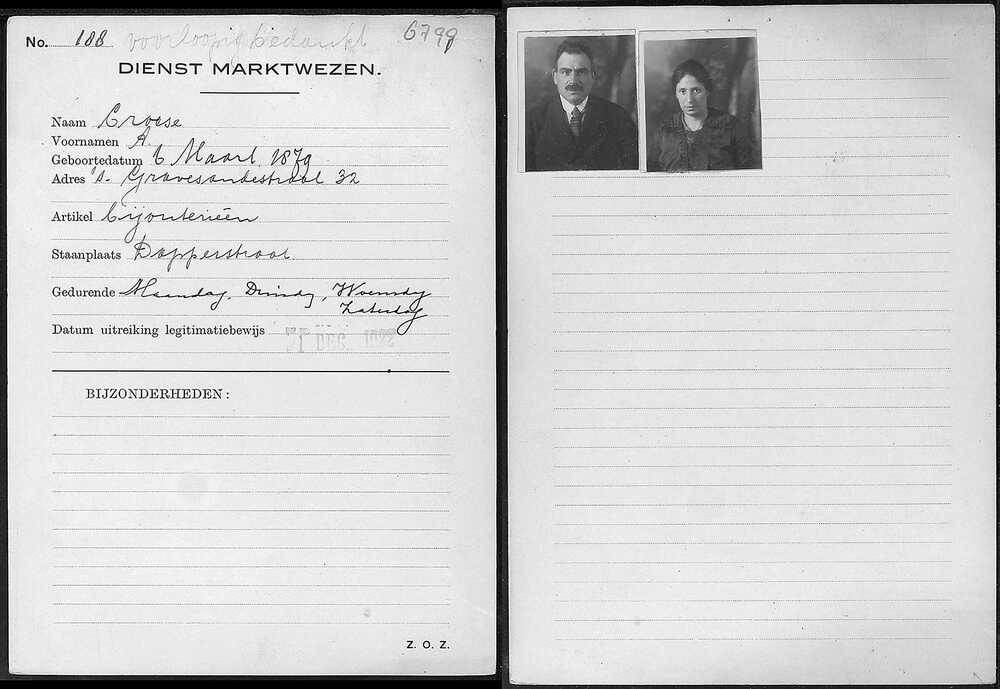 No. 188 voorloopig bedankt 6799
DIENST MARKTWEZEN.
Naam Croese
Voornamen A.
Geboortedatum 6 Maart 1879
Adres 's-Gravesandestraat 32
Artikel bijouterieën
Staanplaats Dapperstraat
Gedurende Maandag, Dinsdg, Woensdg
Zaterdag
Datum uitreiking legitimatiebewijs
DEC. 1922
BIJZONDERHEDEN:
Z. O. Z.